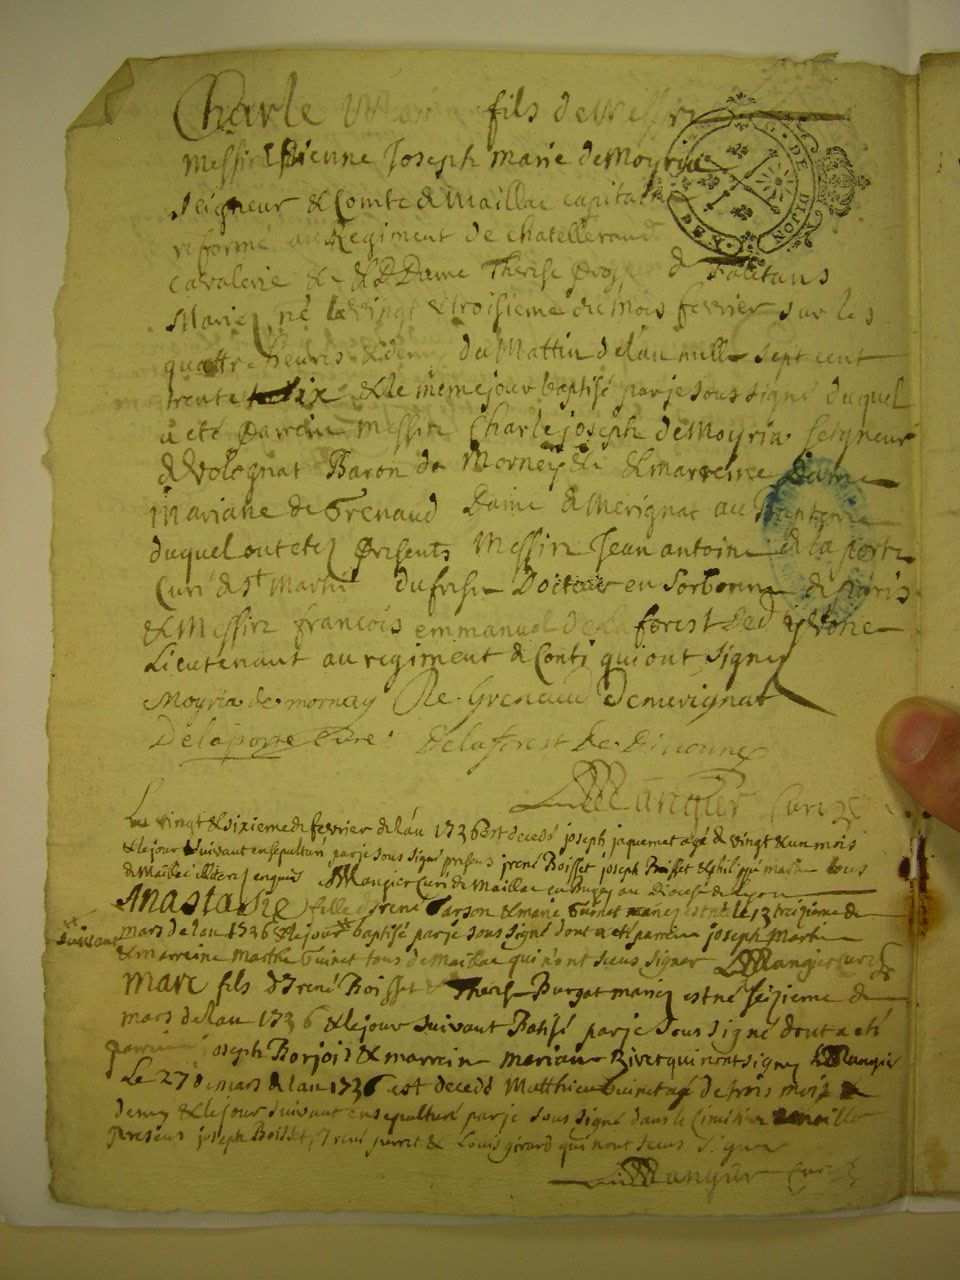 Charle fils de Messire
Messire Estienne Joseph marie de Moyria
Seigneur & Comte de Maillac capitaine
reformé au Regiment de chatelleraud
Cavalerie & de Dame Therese de falletans
Mariez, né le vingt & troisieme du mois fevrier sur les
quattre heures & demy du Mattin de lan mille sept cent
trente six & le meme jour baptisé par je sous signé duquel
a eté parrein Messire Charle joseph de Moyria Seigneur
de Volognat Baron de Mornex & marreine Dame
Mariane de Grenaud Dame de Merignat au
duquel ont etez presents Messire Jean antoine de la porte
Curé de st Martin du fresne Docteur en Sorbonne de paris
& Messire francois emmanuel de la forest de divonne
Lieutenant au regiment de Conti qui ont signez
Moyria de mornay De Grenaud Demerignat
Delaporte Curé Delafforest De Divonne
Mangier Curé
Le vingt & sixieme de fevrier de lan 1736 est decedé joseph jaquemet agé de vingt & un mois
& le jour suivant ensepulturé par je sous signé presens jrené Boisset joseph Boisset & philippe tous
de Maillac illiterez enquis Mangier Curé de Maillac en Bugey au Diocese de Lyon
ANASTASIE fille d'jrené Carson & marie Guinet mariez est née le 13 treizieme de
mars de lan 1736 & le jour baptisé par je sous signé dont a eté parrein joseph Marthe
suivant
& marreine Marthe Guinet tous de Maillac qui n'ont sceus signer Mangier curé
MARC fils d'Jrené Boisset & Therese Burgat mariez est né seizieme de
mars de lan 1736 & le jour suivant Batisé par je sous signé dont a eté
parrein joseph Borjois & marrein mariane Rivet qui n'ont signez Mangier
Le 27 de mars de lan 1736 est decedé Matthieu Guinet agé de trois mois &
demy & le jour suivant ensepulturé par je sous signé dans le Cimitiere maillac
presens joseph Boisset, jrené perret & Louis girard qui n'ont sceus signer
Mangier Curé
DE DIJON